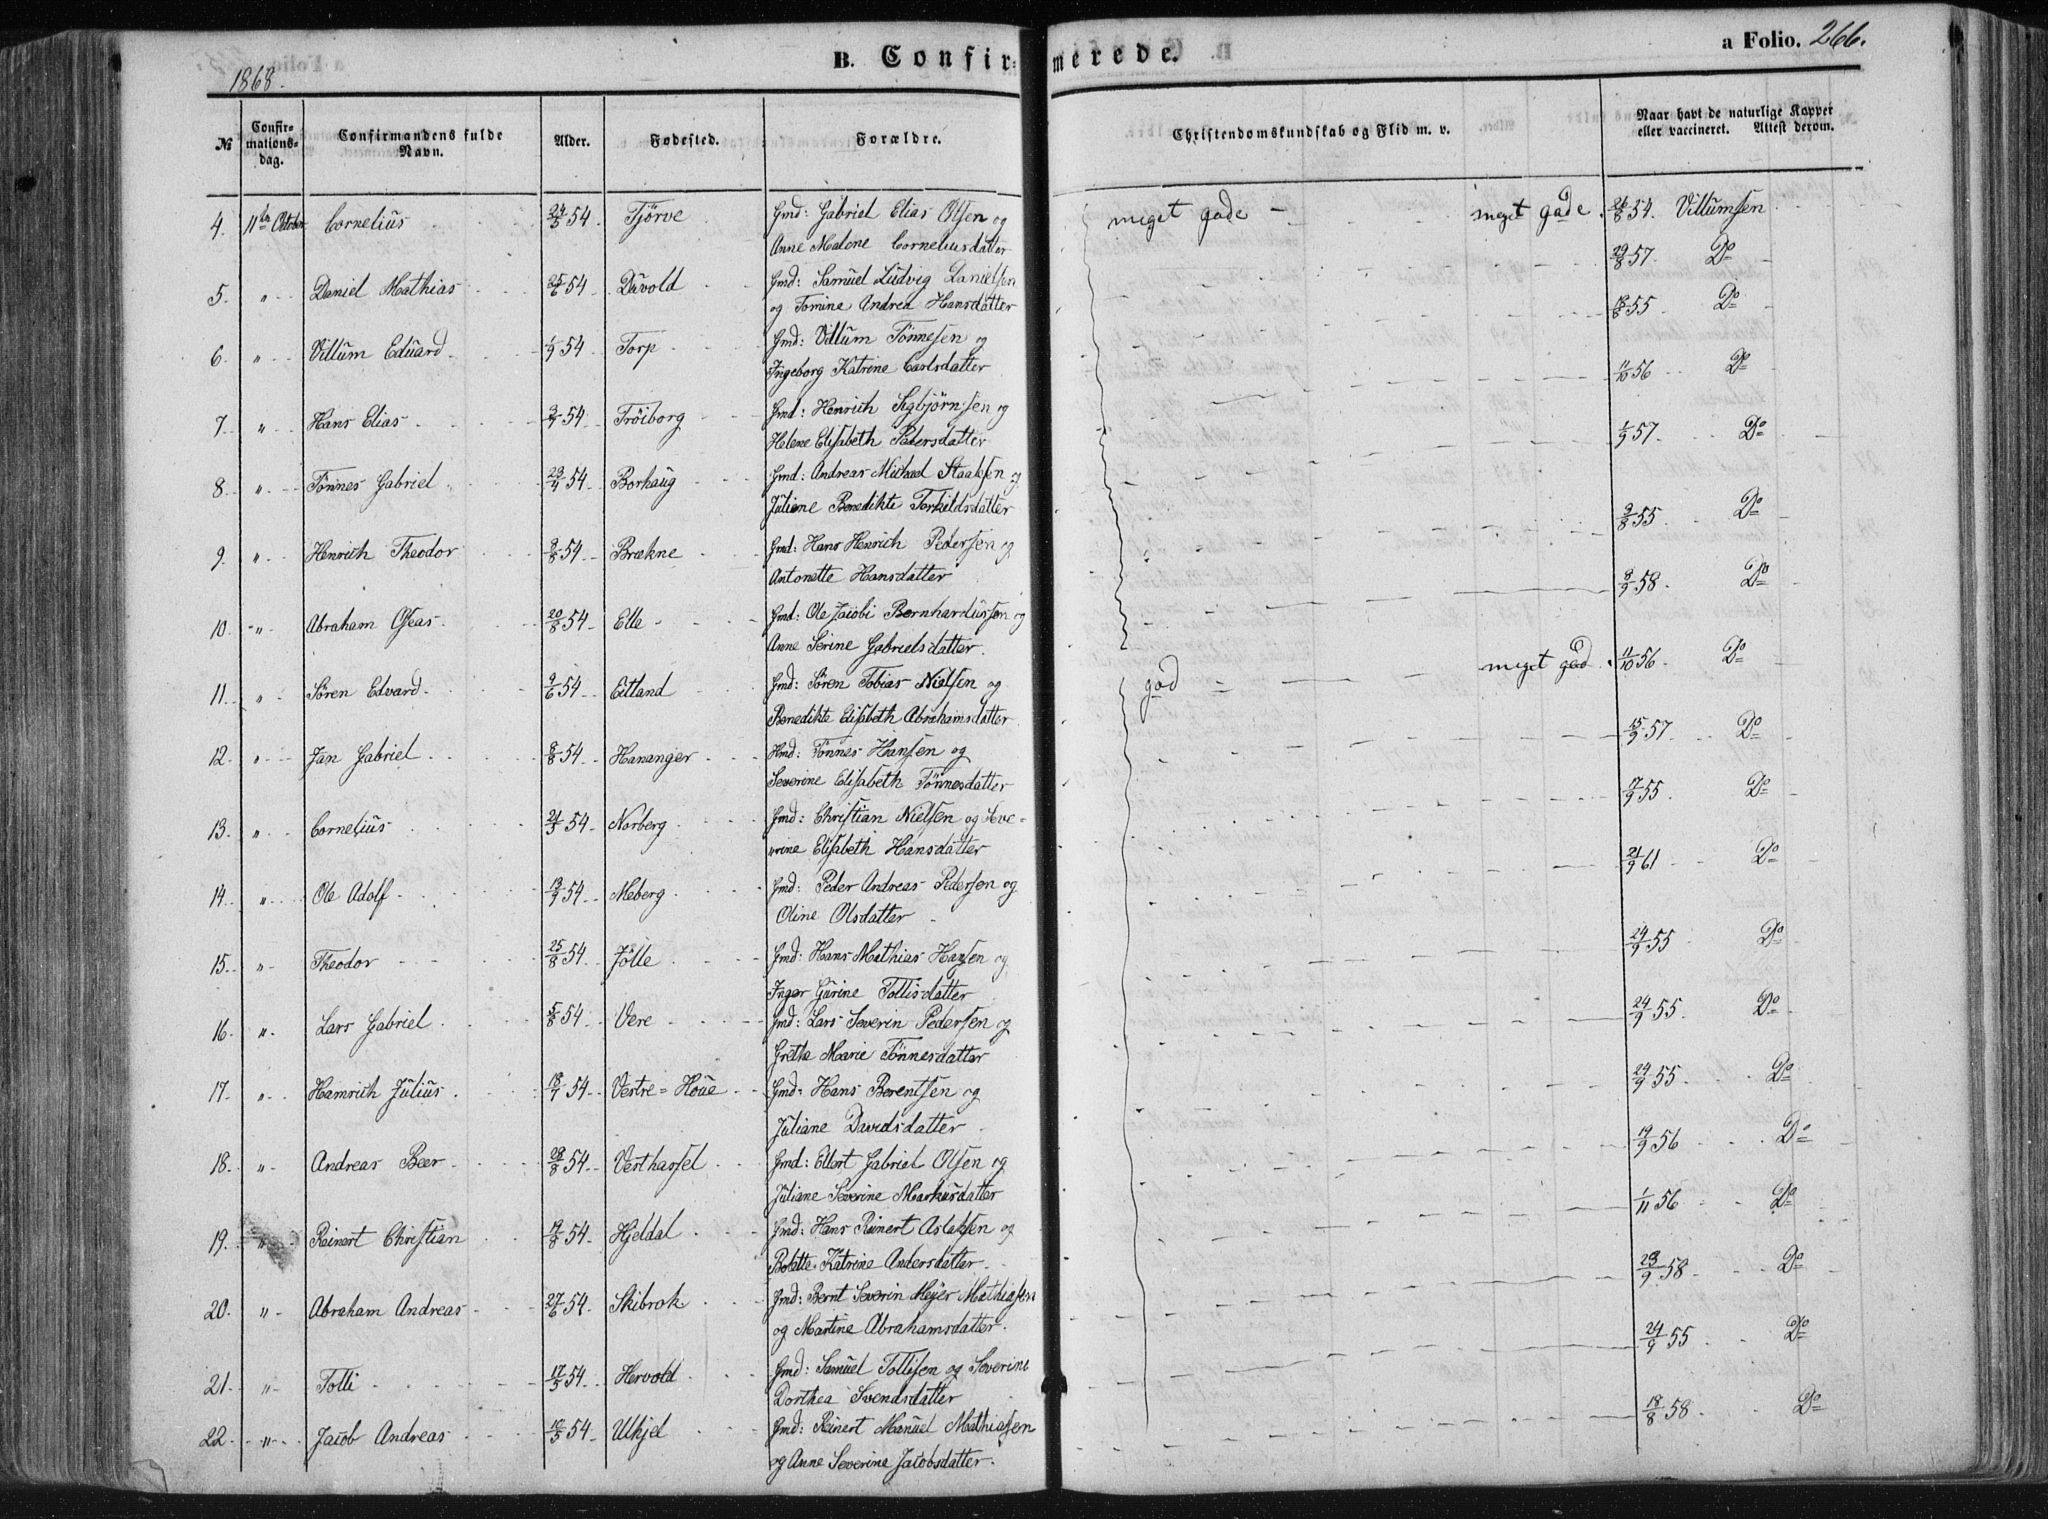 1868.
B. Confirmerede.
a Folio. 266.
№ Confirmationsdag. Confirmandens fulde Navn. Alder. Fødested. Forældre. Christendomskundskab og Flid m. v. Naar havt de naturlige Kopper eller vaccineret. Attest derom.
4. 11te October Cornelius 24/5 54. Tjörve Gmd: Gabriel Elias Olsen og meget gode - meget gode. 26/8 54. Villumsen
Anne Malene Corneliusdatter
5. " Daniel Mathias 25/6 54. Düvold Gmd: Samuel Ludvig Danielsen 29/8 57. Do
og Tomine Andrea Hansdatter
6. " Villum Eduard 1/9 54 Torp Gmd: Villum Tönnesen og 18/8 55 Do
Ingeborg Katrine Carlsdatter
7. " Hans Elias 3/7 54. Tröiborg Gmd: Henrich Sigbjörnsen og 11/10 56 Do
Helene Elisabeth Pedersdatter
8. " Tönnes Gabriel 23/4 54. Borhaug Gmd: Andreas Michael Staalesen og 1/9 57. Do
Juliane Benedikte Torkildsdatter
9. " Henrich Theodor 9/8 54. Brækne Gmd: Hans Henrich Pedersen og 3/8 55 Do
Antonette Hansdatter
10. " Abraham Oseas 20/8 54. Elle Gmd: Ole Jacobi Bernhardussen og 8/9 58. Do
Anne Serine Gabrielsdatter.
11. " Sören Edvard. 9/6 54. Eitland Gmd: Sören Tobias Nielsen og god meget god. 11/10 56. Do
Benedikte Elisabeth Abrahamsdatter
12. " Jan Gabriel 8/8 54 Hananger Hmd: Tönnes Hansen og 15/9 57. Do
Severine Elisabeth Tönnesdatter
13. " Cornelius 21/5 54. Norberg Gmd: Christian Nielsen og Seve- 17/9 55. Do
rine Elisabeth Hansdatter
14. " Ole Adolf 19/9 54. Meberg Gmd: Peder Andreas Pedersen og 21/9 61 Do
Oline Olsdatter
15. " Theodor 25/8 54. Jölle Gmd: Hans Mathias Hansen og 24/9 55 Do
Inger Gürine Tollisdatter
16. " Lars Gabriel 5/8 54 Vere Gmd: Lars Severin Pedersen og 24/9 55. Do
Grethe Marie Tönnesdatter
17. " Hamrich Julius 18/7 54. Vestre=Houe Gmd: Hans Berentsen og 24/9 55. Do
Juliane Davidsdatter
18. " Andreas Beer 28/8 54. Vesthassel Gmd: Ellert Gabriel Olsen og 19/9 56 Do
Juliane Severine Markusdatter
19. " Reinert Christian 19/8 54. Hjeldal Gmd: Hans Reinert Aslaksen og 1/11 56 Do
Bolette Katrine Andersdatter.
20. " Abraham Andreas 27/6 54. Skibrok Gmd: Bernt Severin Meyer Mathiasen 23/9 58. Do
og Martine Abrahamsdatter.
21. " Tolli 17/5 54. Hervold Gmd: Samuel Tollisen og Severine 24/9 55 Do
Dorthea Svendsdatter
22. " Jacob Andreas 10/5 54. Ulkjel Gmd: Reinert Manuel Mathiassen 18/8 58 Do
og Anne Severine Jacobsdatter.